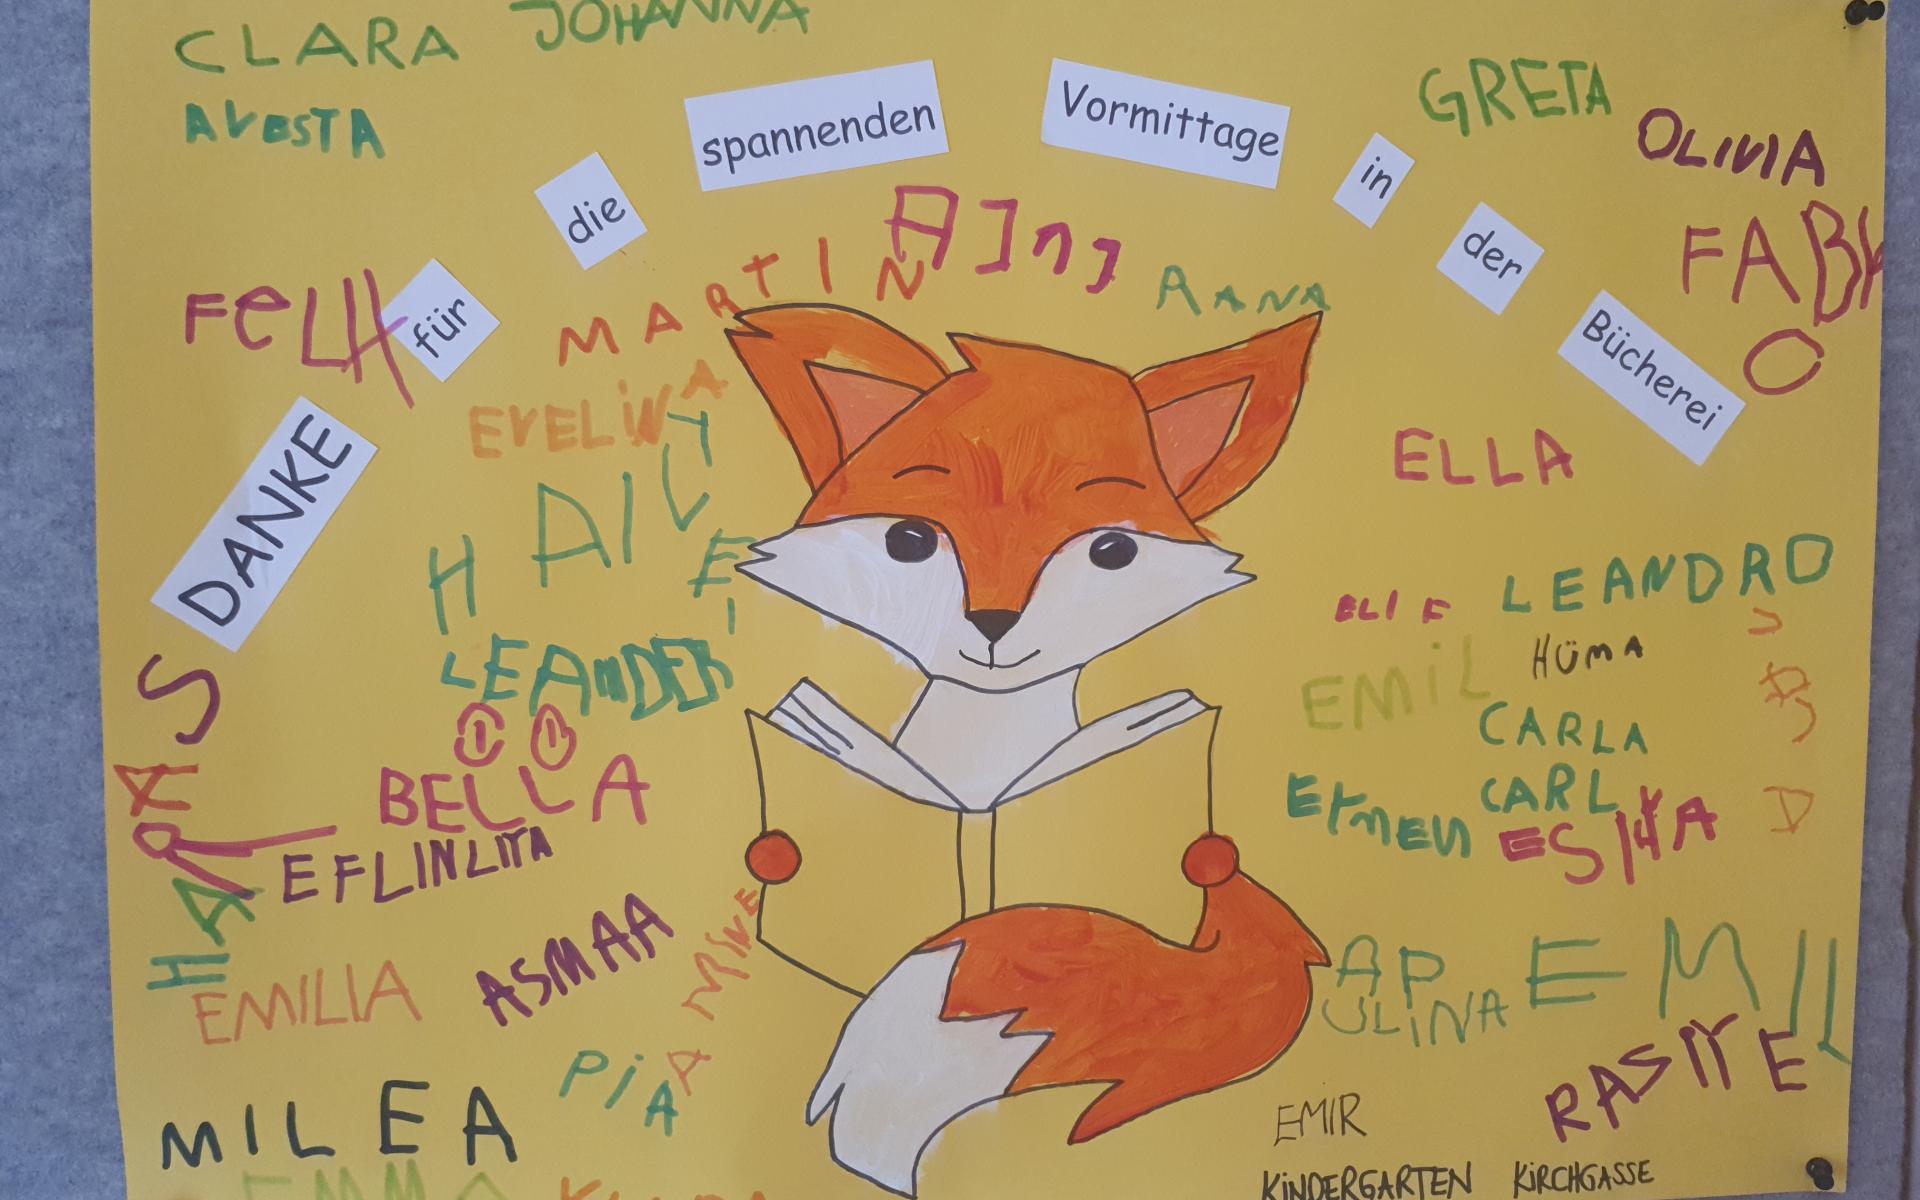 CLARA JOHANNA
AVESTA
GRETA
OLIVIA
FABI
O
DANKE für die spannenden Vormittage in der Bücherei
FELIX
MARTIN
RANA
EVELINA
ELLA
LEANDRO
ELIF
HÜMA
EMIL
LEANDER
CARLA
BELLA
CARL
EYMEN
EFLINLITA
ASMAA
EMILIA
AMINE
EMIL
MILEA
PIA
EMIR
EMMA
KINDERGARTEN KIRCHGASSE